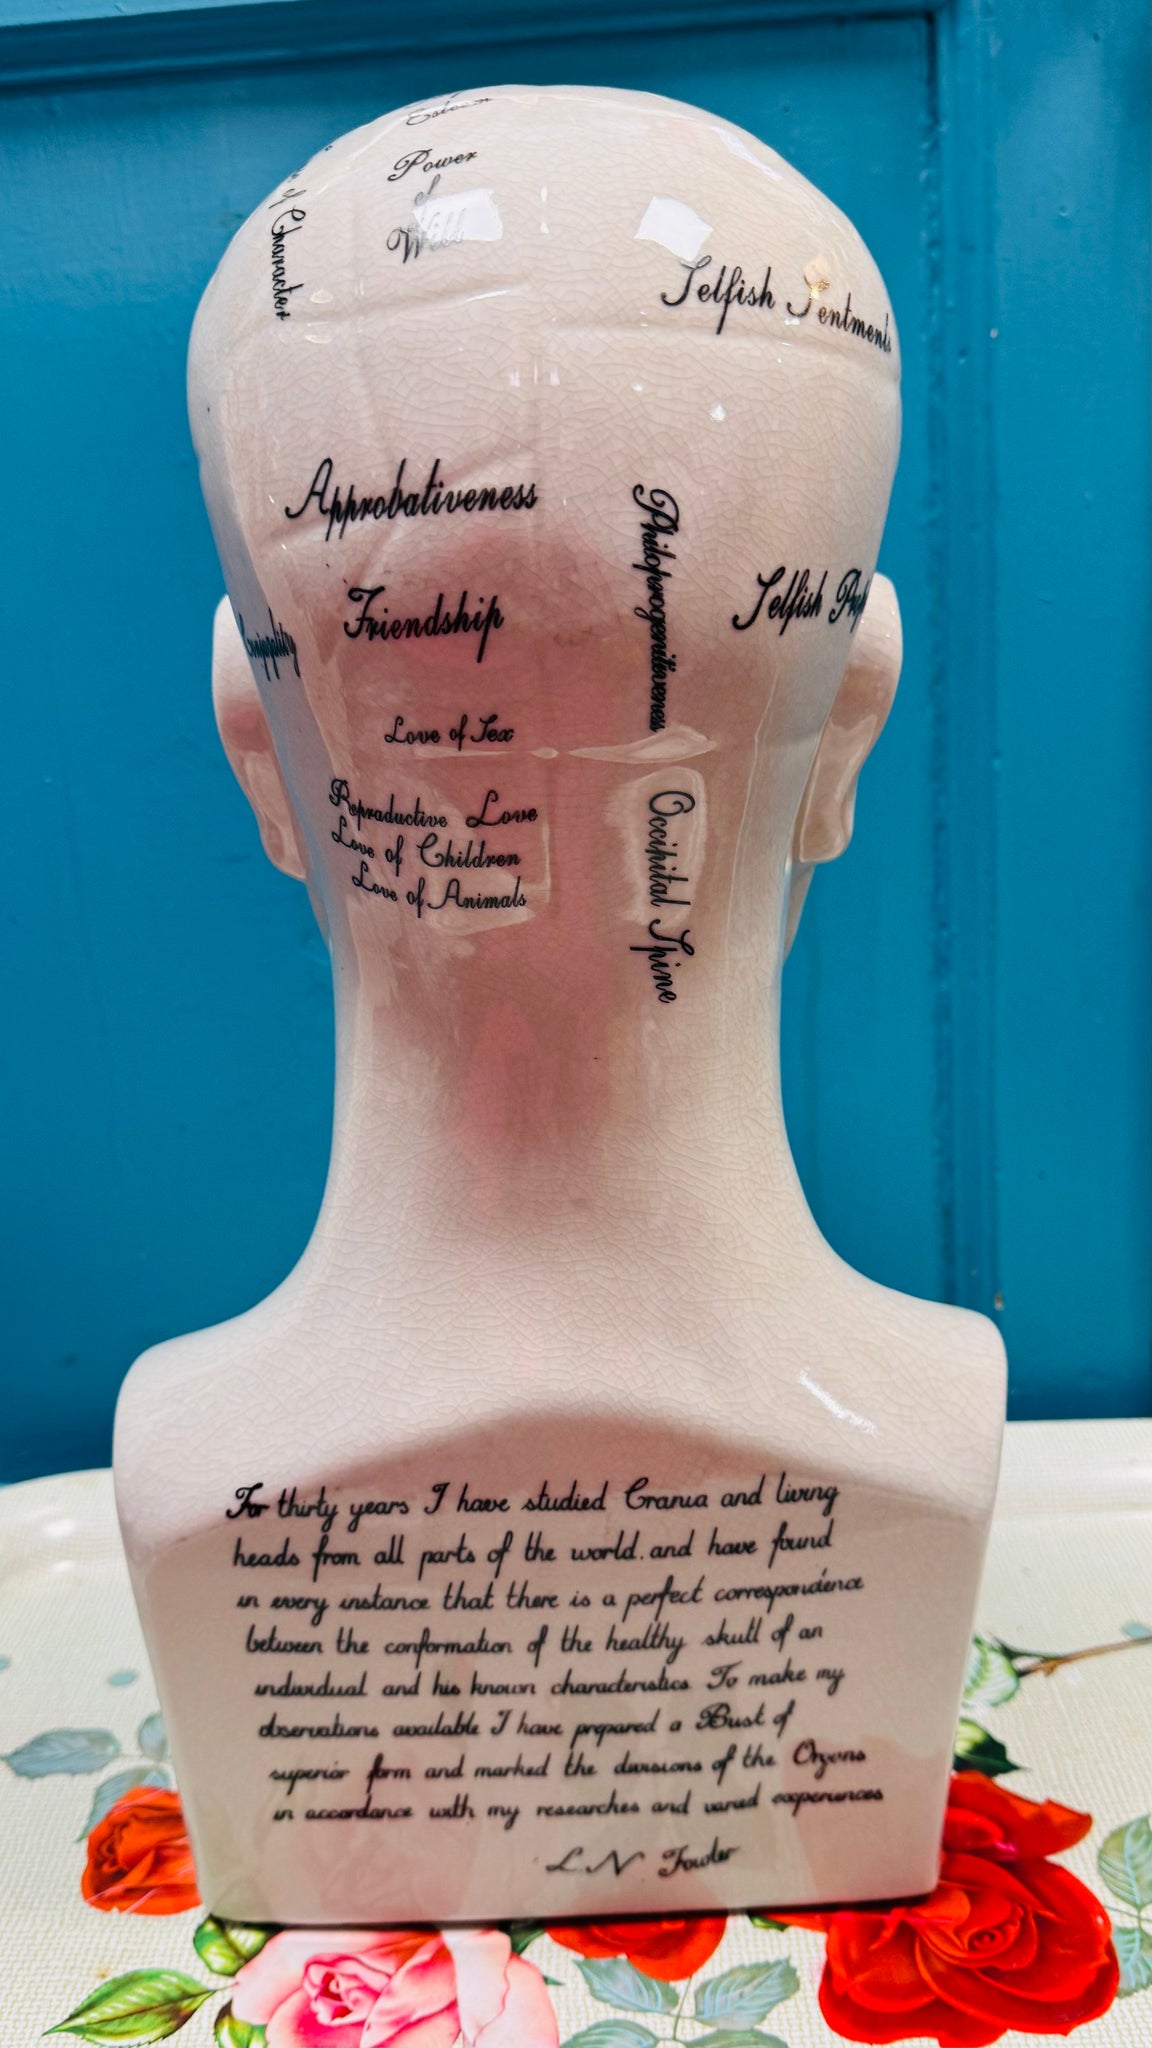 Power
of
Will
of Character
Selfish Sentments
Approbativeness
Philoprogenitiveness
Friendship
Selfish
Love of Sex
Reproductive Love
Love of Children
Love of Animals
Occihital Spine
For thirty years I have studied Crania and living
heads from all parts of the world. and have found
in every instance that there is a perfect correspondence
between the conformation of the healthy skull of an
individual and his known characteristics To make my
observations available I have prepared a Bust of
superior form and marked the divisions of the Organs
in accordance with my researches and varied experiences
L. N Fowler